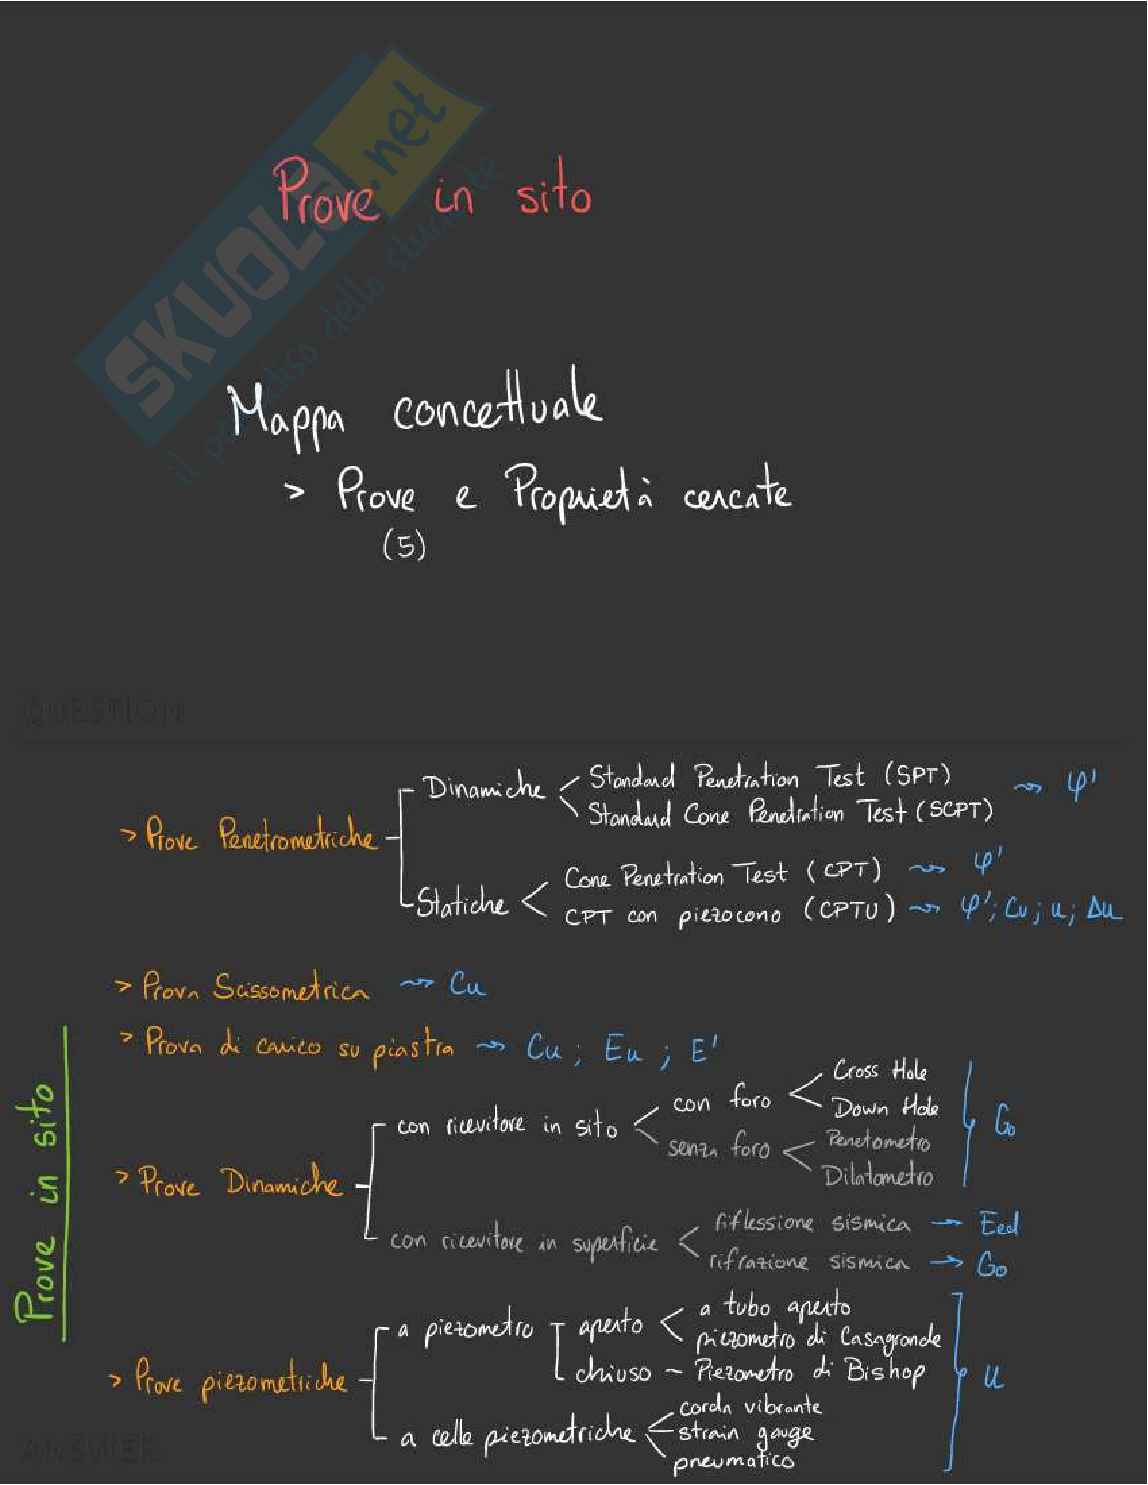 SKUOLA.net
il paradiso dello studente
Prove in sito
Mappa concettuale
> Prove e Proprietà cercate
(5)
QUESTION
Dinamiche < Standard Penetration Test (SPT)
Standard Cone Penetration Test (SCPT)
φ'
> Prove Penetrometriche
Statiche < Cone Penetration Test (CPT) φ'
CPT con piezocono (CPTU) φ'; Cu; u; Δu
> Prova Scissometrica Cu
> Prova di carico su piastra Cu ; Eu ; E'
Prove in sito
> Prove Dinamiche
con ricevitore in sito
con foro < Cross Hole
Down Hole
senza foro < Penetometro
Dilatometro
Go
con ricevitore in superficie < riflessione sismica → Eed
rifrazione sismica → Go
> Prove piezometriche
a piezometro
aperto < a tubo aperto
piezometro di Casagrande
chiuso – Piezometro di Bishop
a celle piezometriche < corda vibrante
strain gauge
pneumatico
u
ANSWER